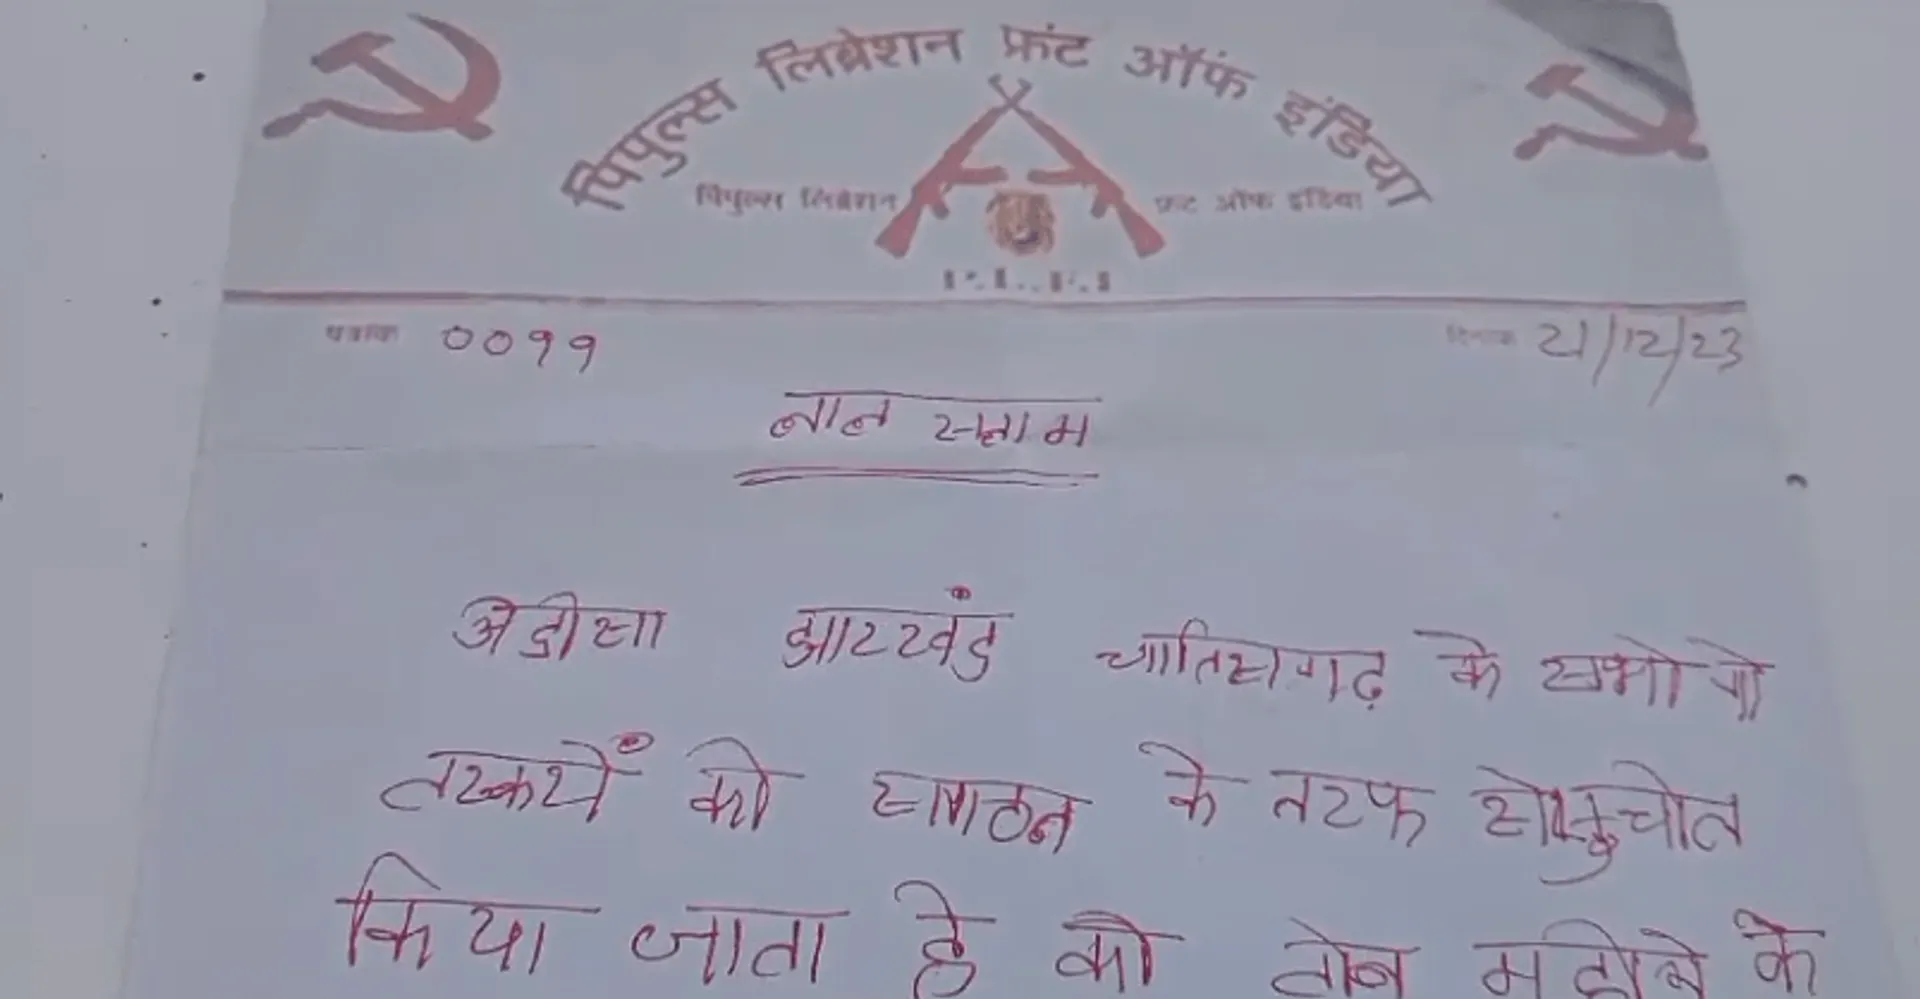 पिपुल्स लिब्रेशन फ्रंट ऑफ इंडिया
पिपुल्स लिब्रेशन फ्रंट ऑफ इंडिया
पत्रांक 0099
दिनांक 21/12/23
लाल सलाम
ओडीसा झारखंड छातिसगढ़ के सभी गो
तस्करों को संगठन के तरफ से सुचीत
किया जाता है की तीन महीने के